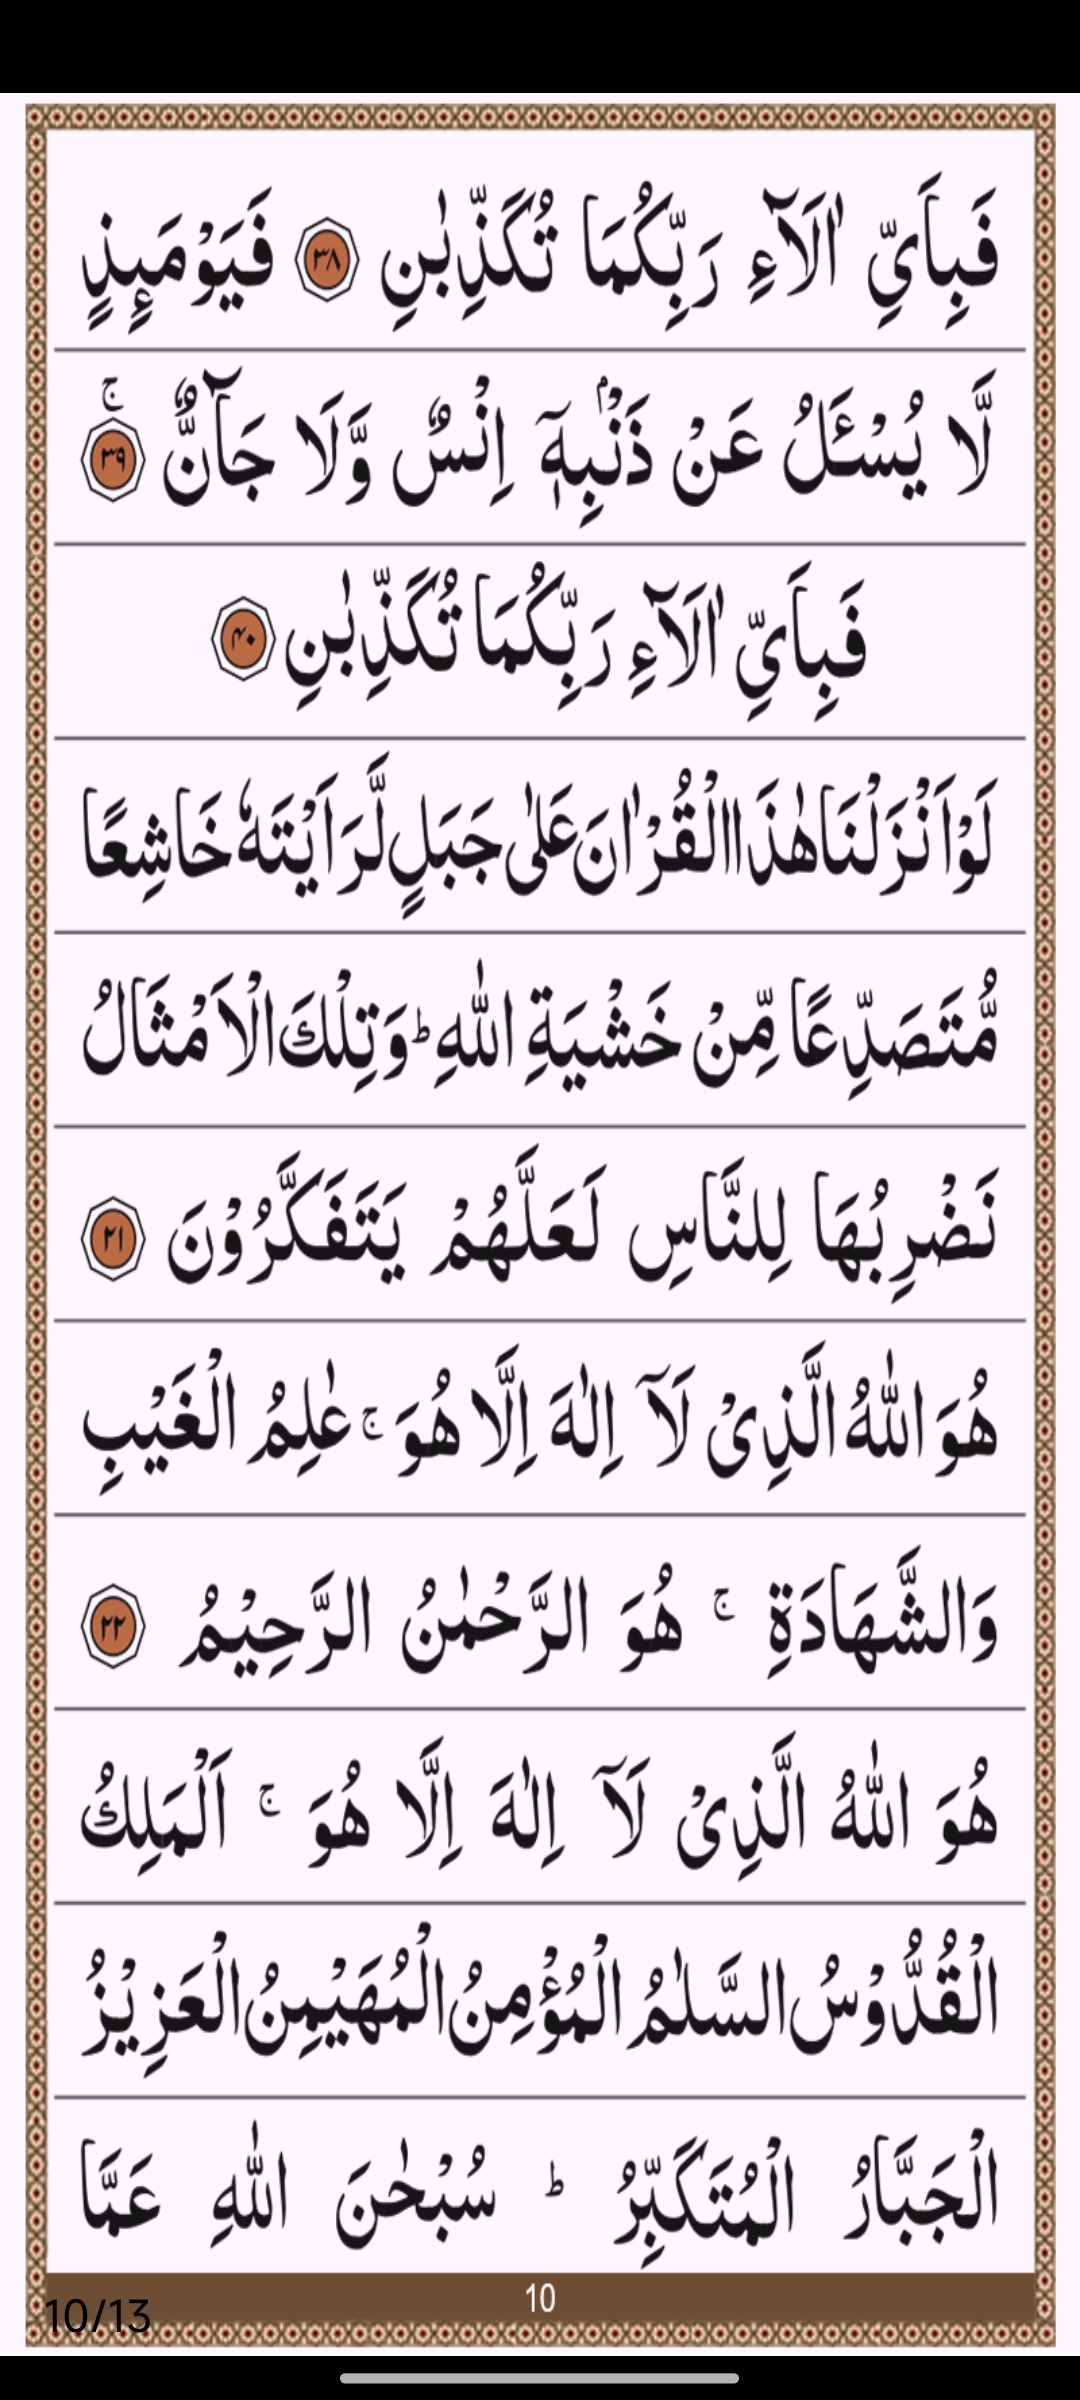 فَبِاَيِّ اٰلَآءِ رَبِّكُمَا تُكَذِّبٰنِ ﴿۳۸﴾ فَيَوْمَىِٕذٍ
لَّا يُسْـَٔلُ عَنْ ذَنْۢبِهٖۤ اِنْسٌ وَّلَا جَآنٌّ ۚ﴿۳۹﴾
فَبِاَيِّ اٰلَآءِ رَبِّكُمَا تُكَذِّبٰنِ ﴿۴۰﴾
لَوْ اَنْزَلْنَا هٰذَا الْقُرْاٰنَ عَلٰى جَبَلٍ لَّرَاَيْتَهٗ خَاشِعًا
مُّتَصَدِّعًا مِّنْ خَشْيَةِ اللّٰهِ ؕ وَتِلْكَ الْاَمْثَالُ
نَضْرِبُهَا لِلنَّاسِ لَعَلَّهُمْ يَتَفَكَّرُوْنَ ﴿۲۱﴾
هُوَ اللّٰهُ الَّذِىْ لَاۤ اِلٰهَ اِلَّا هُوَ ۚ عٰلِمُ الْغَيْبِ
وَالشَّهَادَةِ ۚ هُوَ الرَّحْمٰنُ الرَّحِيْمُ ﴿۲۲﴾
هُوَ اللّٰهُ الَّذِىْ لَاۤ اِلٰهَ اِلَّا هُوَ ۚ اَلْمَلِكُ
الْقُدُّوْسُ السَّلٰمُ الْمُؤْمِنُ الْمُهَيْمِنُ الْعَزِيْزُ
الْجَبَّارُ الْمُتَكَبِّرُ ؕ سُبْحٰنَ اللّٰهِ عَمَّا
10
10/13